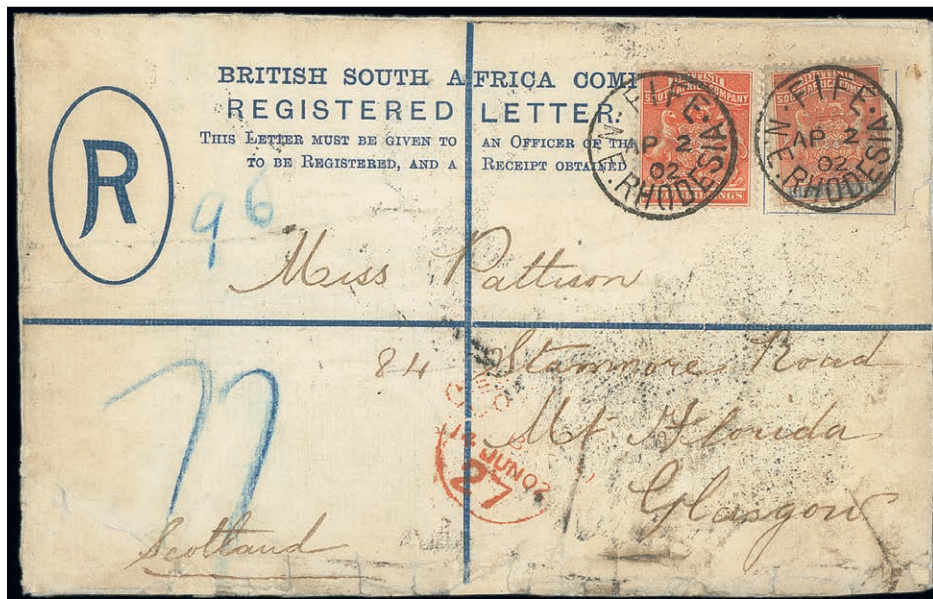 BRITISH SOUTH AFRICA COM
REGISTERED LETTER.
THIS LETTER MUST BE GIVEN TO AN OFFICER OF THE
TO BE REGISTERED, AND A RECEIPT OBTAINED
R
SOUTH AFRICA COMPANY
FIFE
AP 2
02
N.E. RHODESIA
SOUTH AFRICA COMPANY
FIFE
AP 2
02
N.E. RHODESIA
96
Miss Pattison
84 Stanmore Road
Mt Florida
Glasgow
Scotland
JUN 02
27